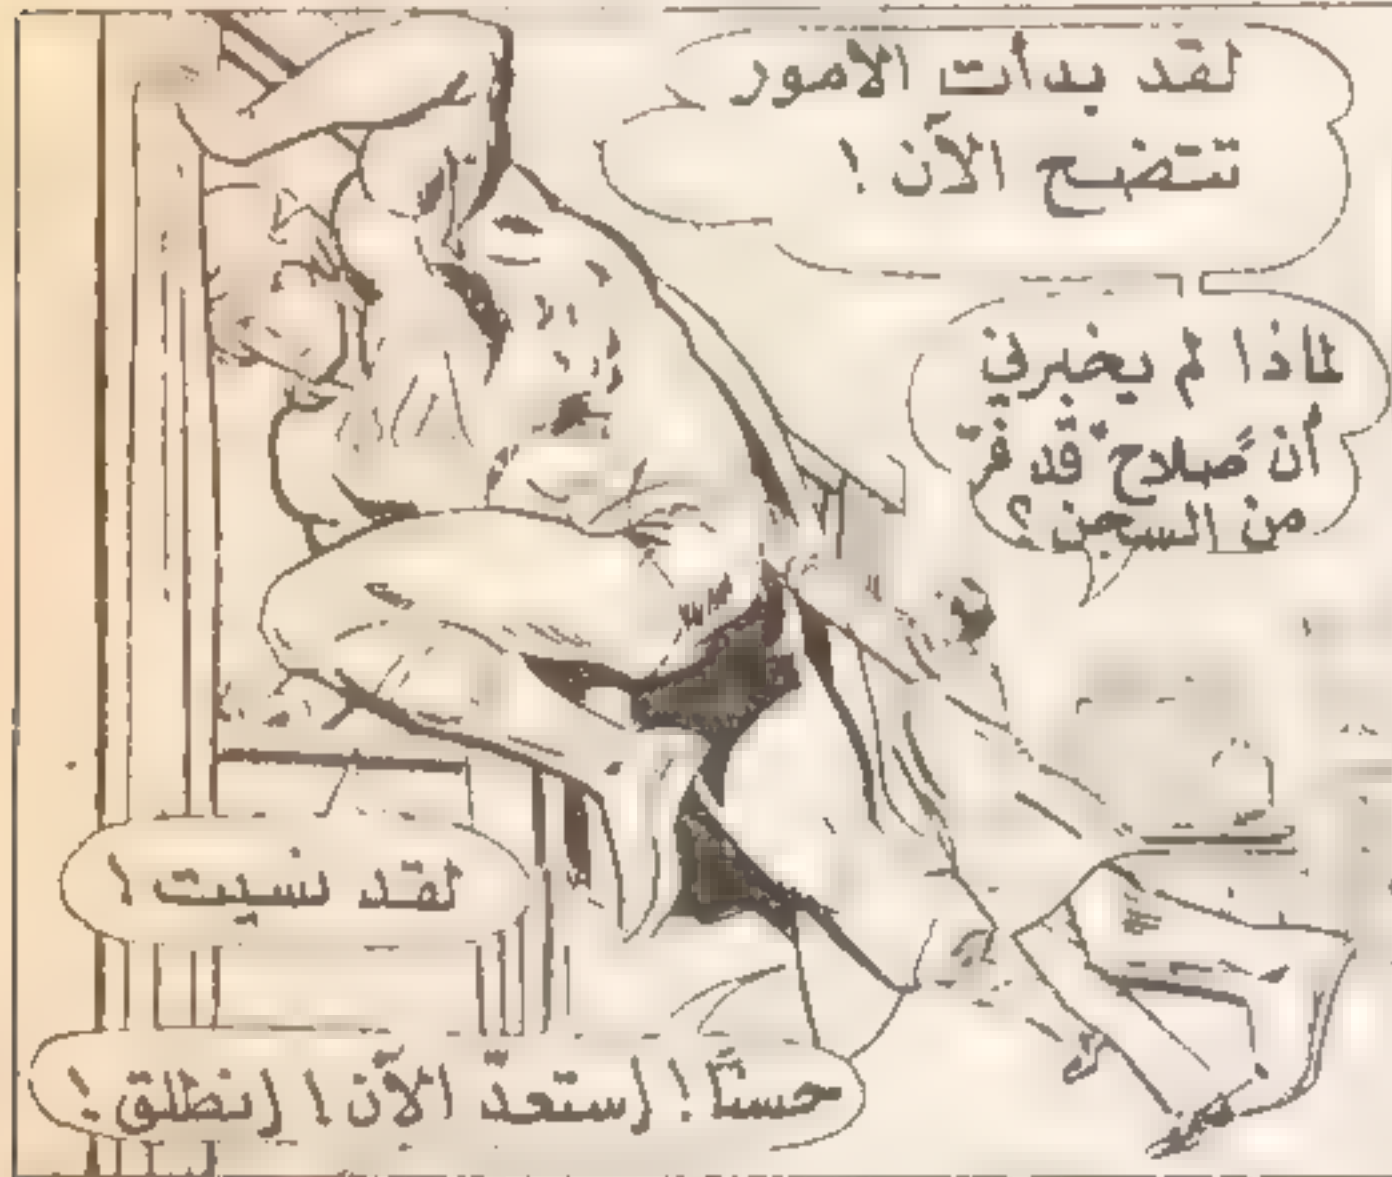 لقد بدأت الأمور
تتضح الآن !
لماذا لم يخبرني
أن "صلاح" قد فرّ
من السجن ؟
لقد نسيت !
حسنًا ! إستعدّ الآن ! إنطلق !